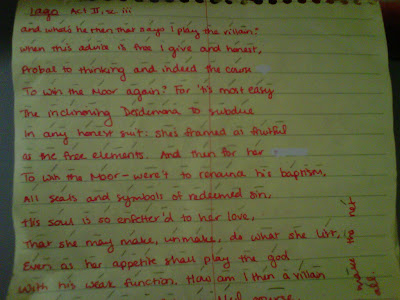 Iago Act II, sc iii
and what's he then that says I play the villain?
When this advice is free I give and honest,
Probal to thinking and indeed the course
To win the Moor again? For 'tis most easy
The inclining Desdemona to subdue
In any honest suit: she's framed as fruitful
as the free elements. And then for her
To win the Moor – were't to renounce his baptism,
All seals and symbols of redeemed sin,
His soul is so enfetter'd to her love,
That she may make, unmake, do what she list,
Even as her appetite shall play the god
With his weak function. How am I then a villain
makes the net
all.